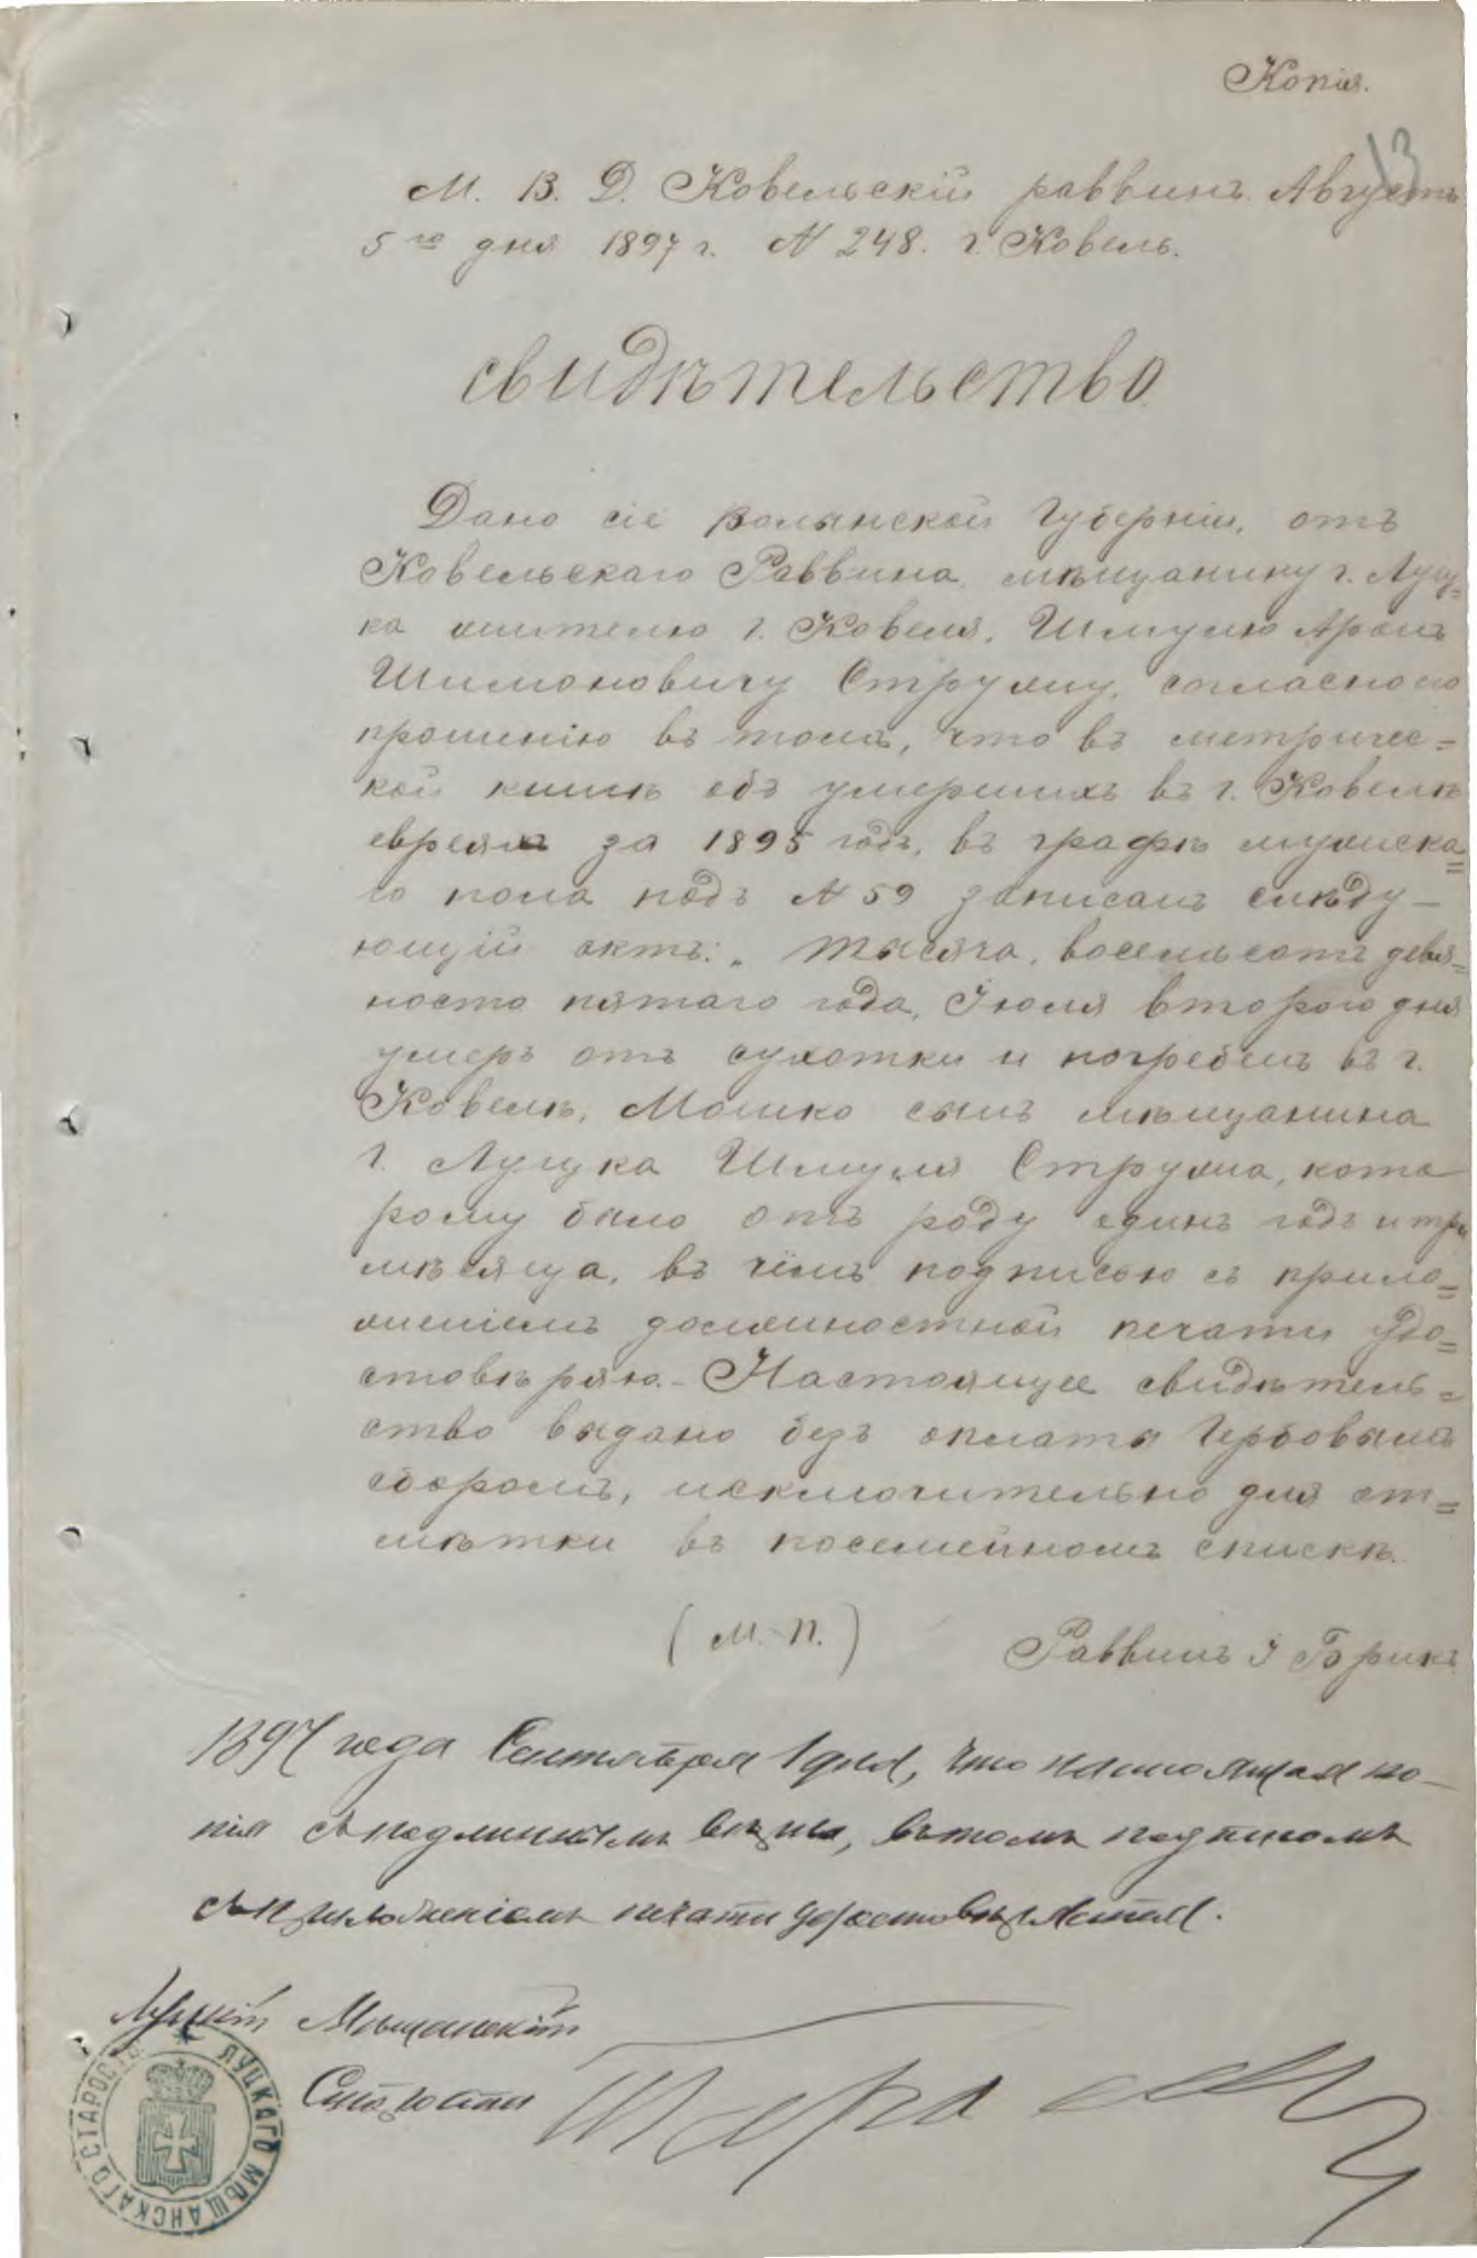 Копія.
13
М. В. Д. Ковельскій раввинъ. Августъ
5го дня 1897 г. N 248. г. Ковель.
свидѣтельство
Дано сіе Волынской Губерніи, отъ
Ковельскаго Раввина мѣщанину г. Луц=
ка жителю г. Ковеля, Шмулю Аронъ
Шимоновичу Струлну, согласно его
прошенію въ томъ, что въ метричес=
кой книгѣ объ умершихъ въ г. Ковелѣ
евреяхъ за 1895 годъ, въ графѣ мужска=
го пола подъ N 59 записанъ слѣду-
ющій актъ: „ тысяча, восемьсотъ девя=
носто пятаго года, Іюля второго дня
умеръ отъ сухотки и погребенъ въ г.
Ковелѣ, Мошко сынъ мѣщанина
г. Луцка Шмуля Струлна, кото
рому было отъ роду одинъ годъ и три
мѣсяца, въ чемъ подписью съ прило=
женіемъ должностной печати удо=
стовѣряю. - Настоящее свидѣтель=
ство выдано безъ оплаты Гербовымъ
сборомъ, исключительно для от=
мѣтки въ посемейномъ спискѣ.
(М. П.)
Раввинъ І Борикъ
1897 года Сентября 1 дня, что настоящая ко-
пія съ подлиннымъ вѣрна, въ томъ подписомъ
съ приложеніемъ печати удостовѣряется.
Луцкій Мѣщанскій
Староста
ЛУЦКАГО МѢЩАНСКАГО СТАРОСТЫ